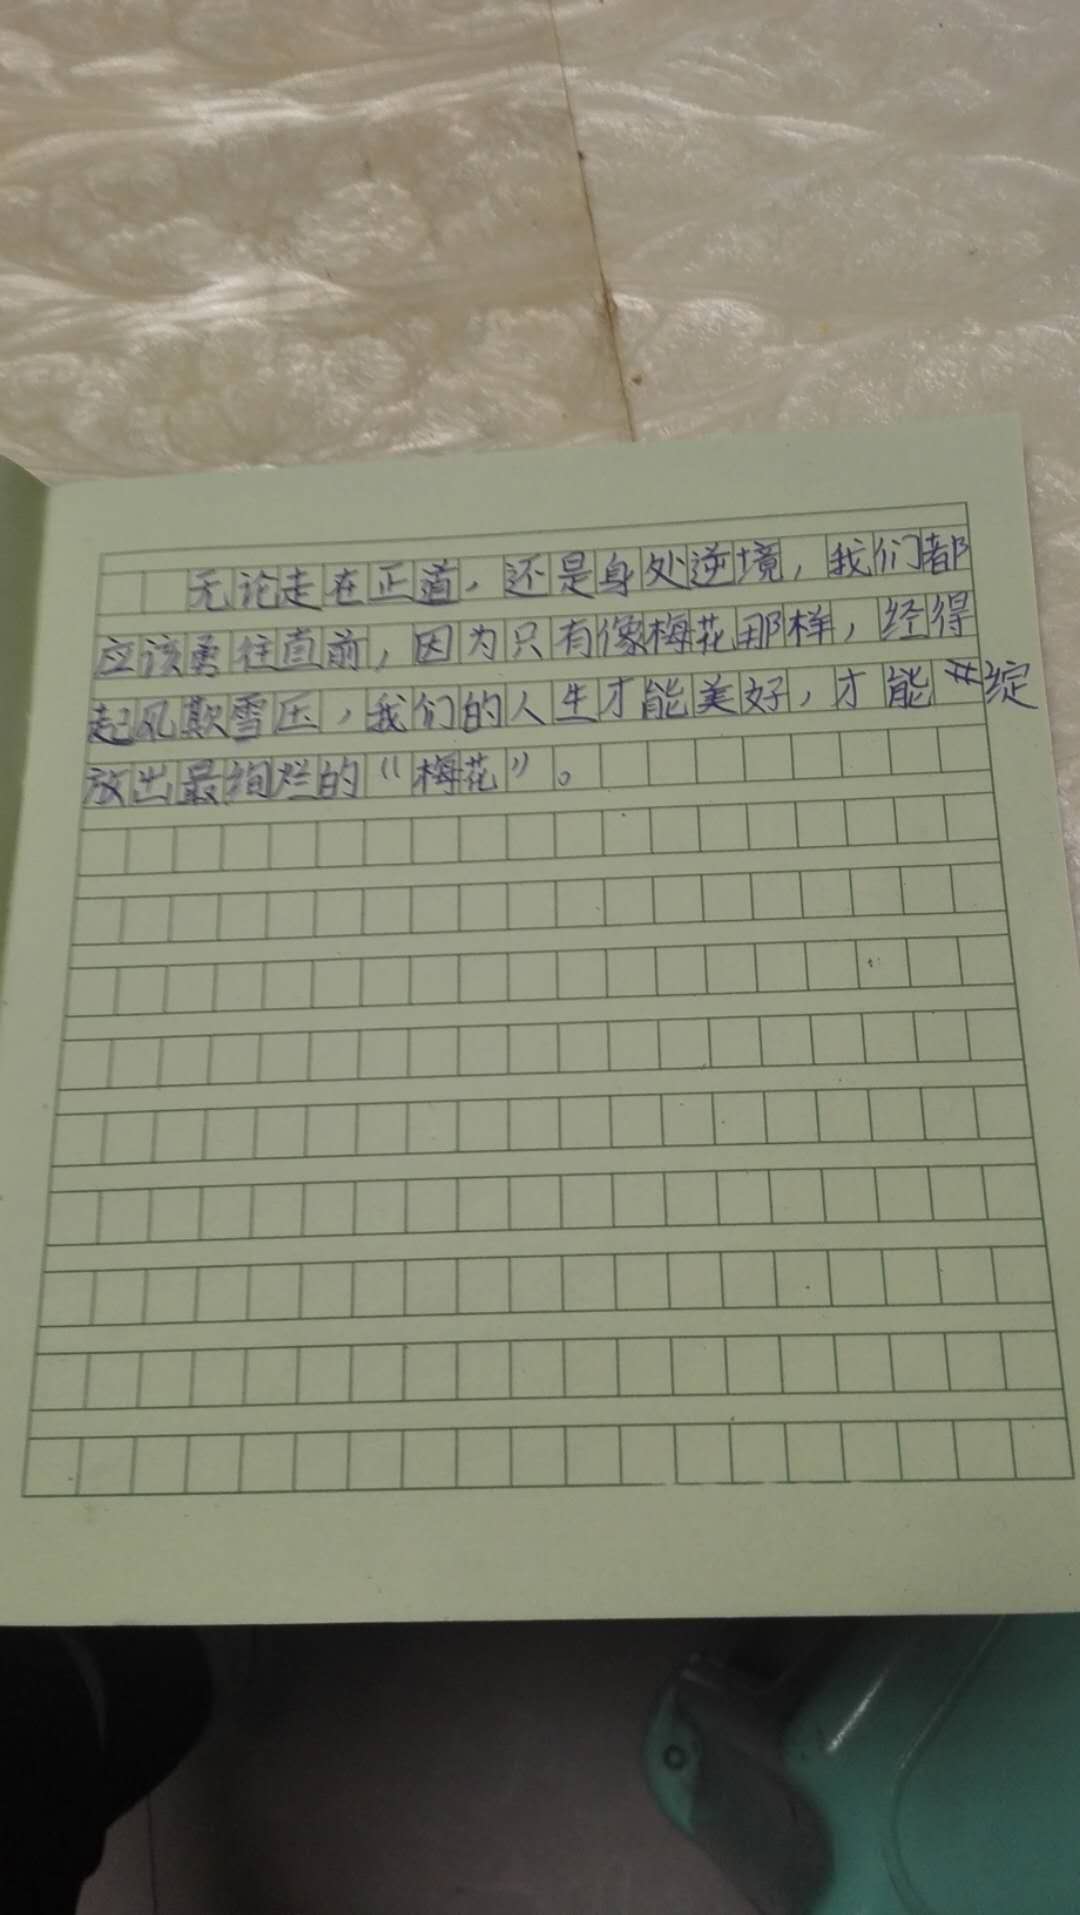 无论走在正道，还是身处逆境，我们都
应该勇往直前，因为只有像梅花那样，经得
起风欺雪压，我们的人生才能美好，才能绽
放出最绚烂的“梅花”。